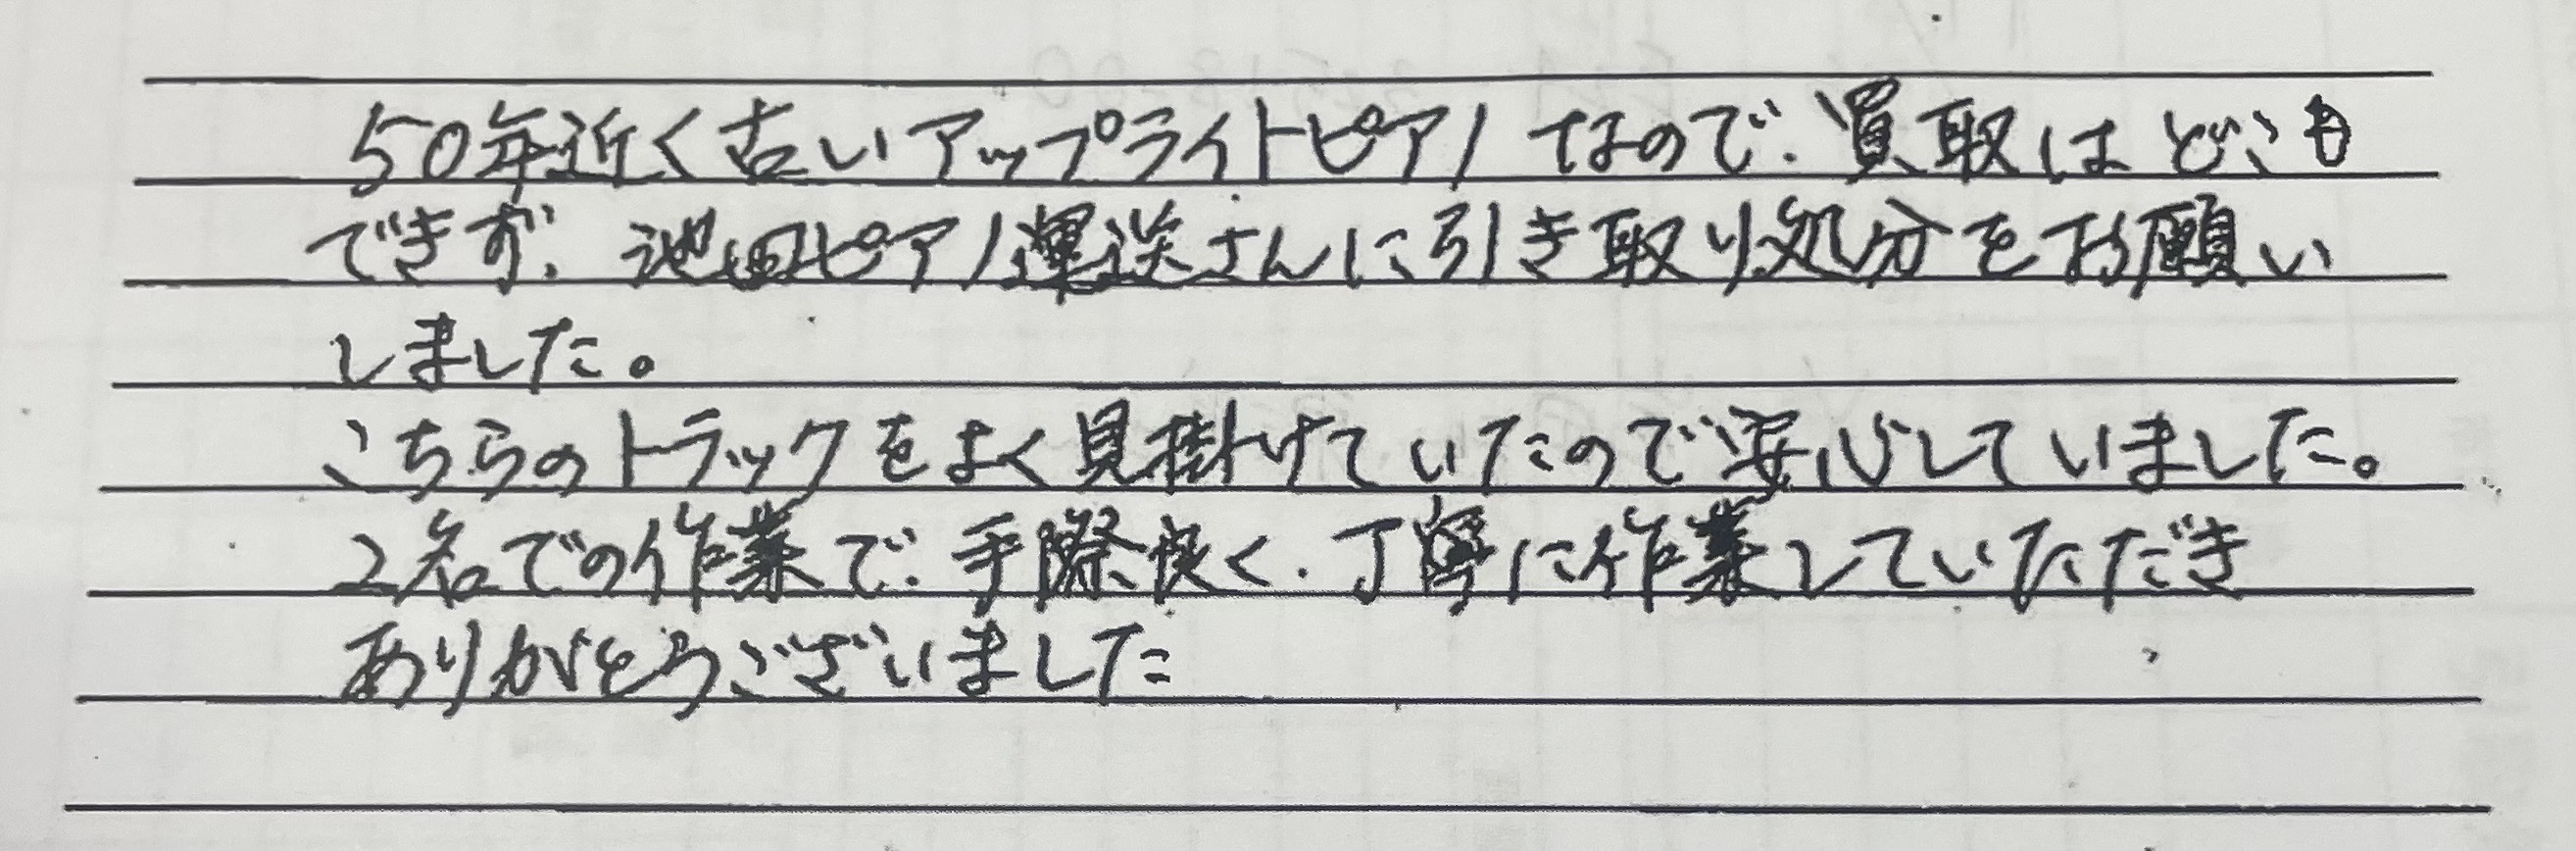 50年近く古いアップライトピアノなので、買取はどこも
できず、池田ピアノ運送さんに引き取り処分をお願い
しました。
こちらのトラックをよく見掛けていたので安心していました。
2名での作業で、手際良く、丁寧に作業していただき
ありがとうございました